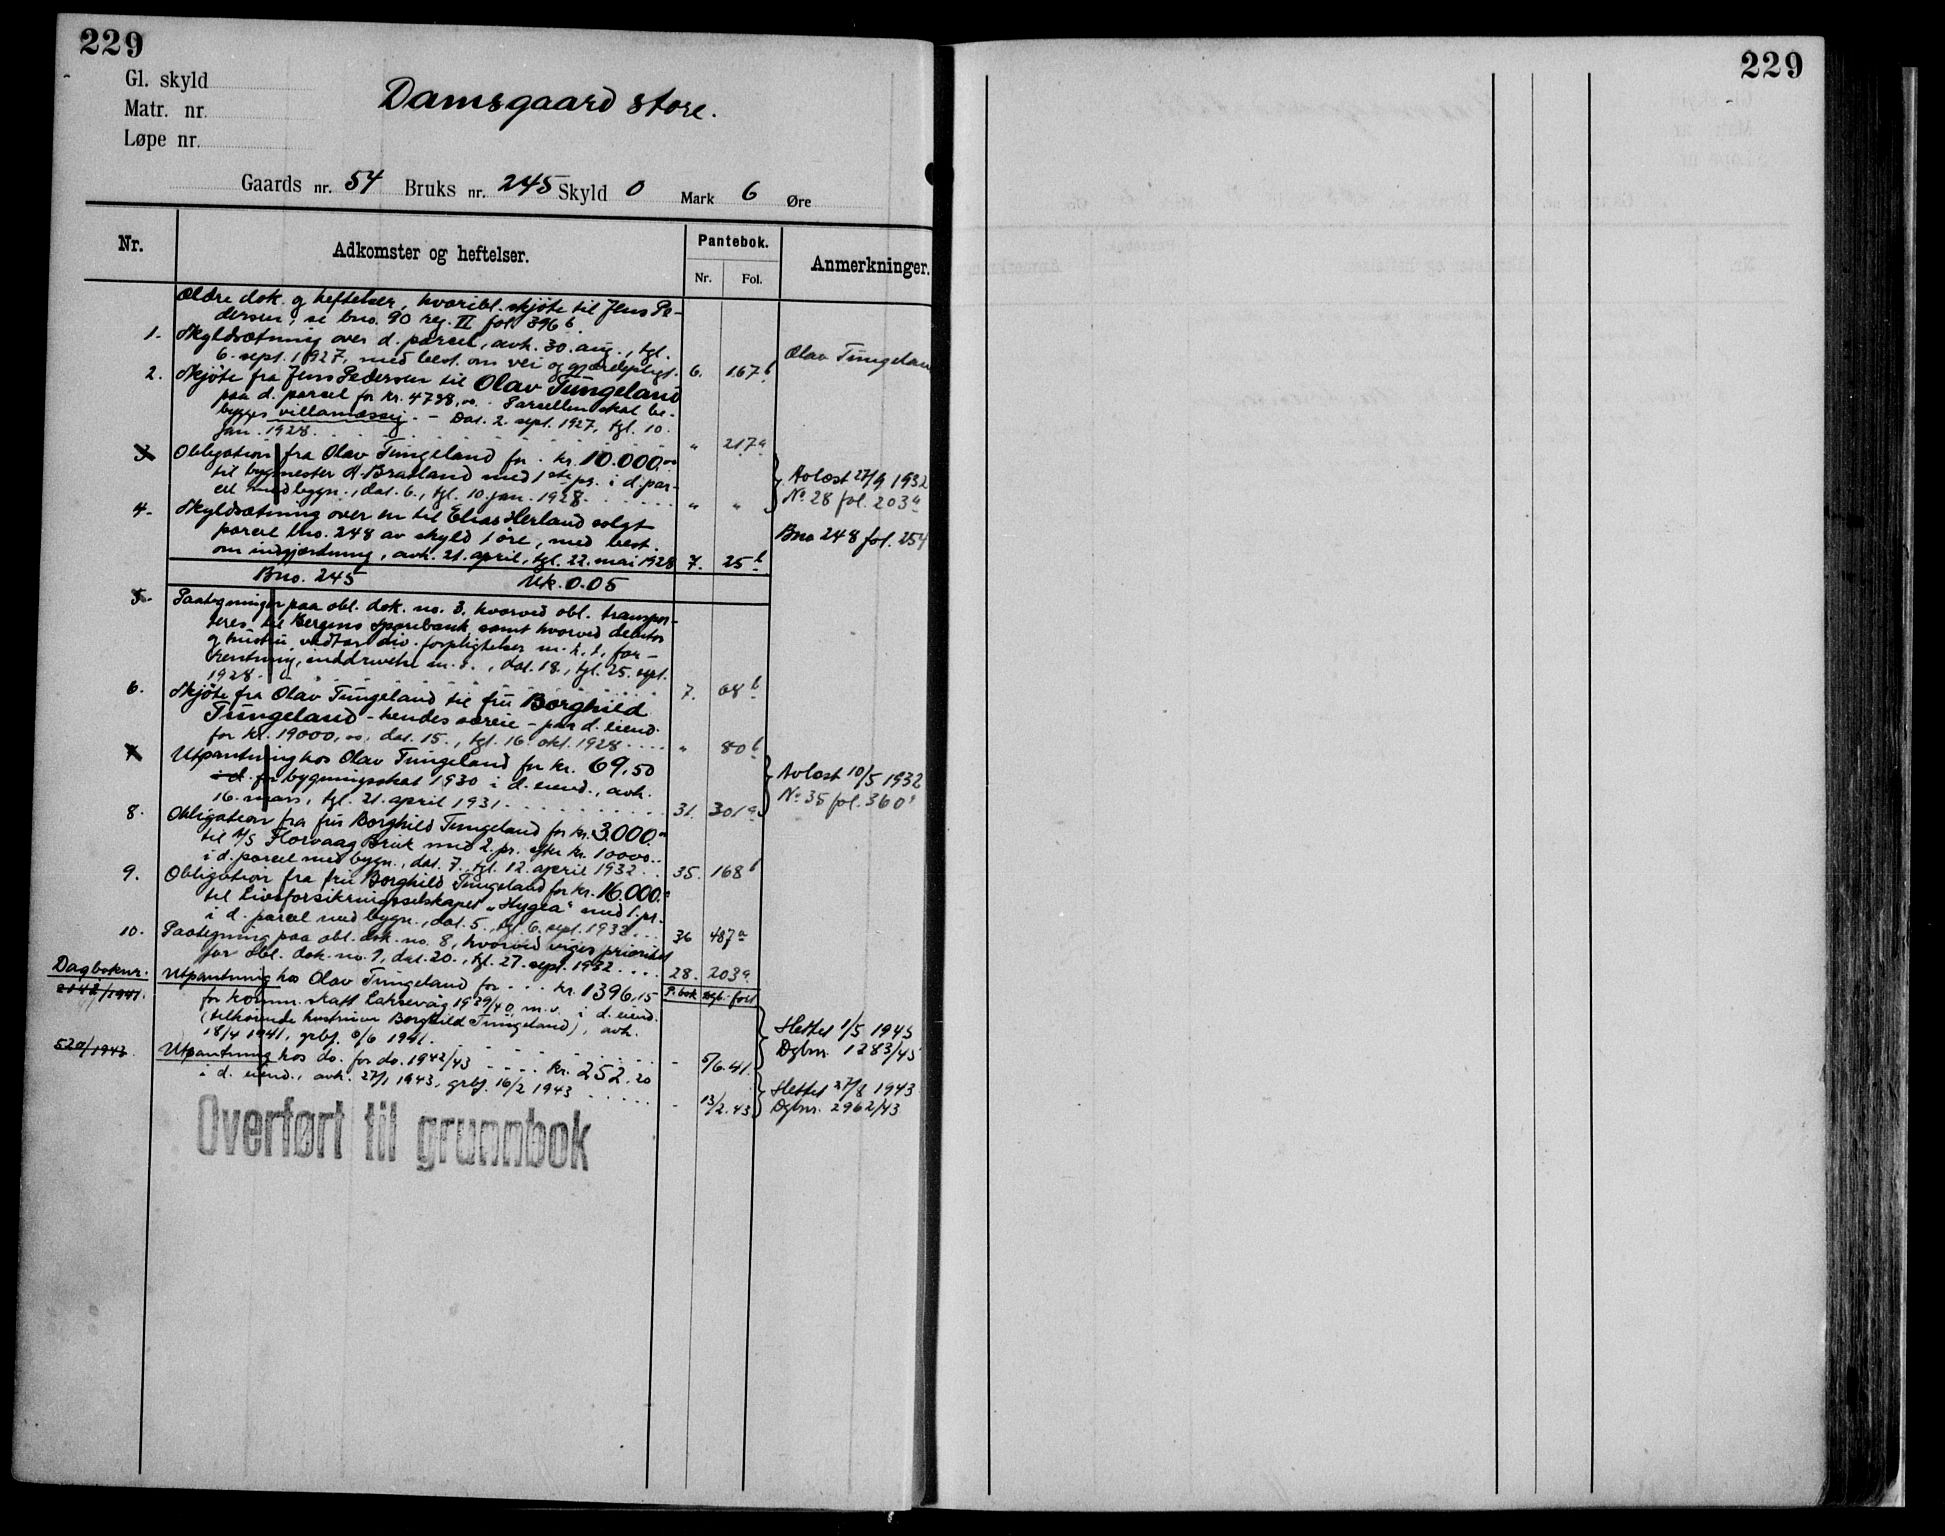 229
Gl. skyld
Matr. nr.
Løpe nr.
Damsgaard store.
Gaards nr. 54 Bruks nr. 245 Skyld 0 Mark 6 Øre
Nr.
Adkomster og heftelser.
Pantebok.
Nr. Fol.
Anmerkninger.
Ældre dok. og heftelser, hvoribl. skjøte til Jens Pe-
dersen, se bno. 90 reg. II fol 396 b.
1. Skyldsætning over d. parcel, avh. 30. aug., tgl.
6. sept. 1927, med best. om vei og gjærdepligt. 6. 167 b
Olav Tungeland
2. Skjøte fra Jens Pedersen til Olav Tungeland
paa d. parcel for kr. 4738,00. Parcellen skal be-
bygges villamæssig. - Dat. 2. sept. 1927, tgl. 10.
jan. 1928. . . . " 217 a
3. Obligation fra Olav Tungeland for kr. 10.000.00
til bygmester A. Bratland med 1ste pr. i d. par-
cel med bygn., dat. 6., tgl. 10. jan. 1928. . . . " "
Avlæst 27/9 1932
No 28 fol. 203 a
4. Skyldsætning over en til Elias Herland solgt
parcel bno. 248 av skyld 1 øre, med best.
om indgjærdning, avh. 21. april, tgl. 22. mai 1928 7. 25 b
Bno 248 fol. 254
Bno. 245 Mk. 0.05
5. Paategninger paa obl. dok. no. 3, hvorved obl. transpor-
teres til Bergens Sparebank samt hvorved debitor
og hustru vedtar div. forpligtelser m. h. t. for-
rentning, inddrivelse m. v., dat. 18., tgl. 25. sept.
1928. . . . 7. 68 b
6. Skjøte fra Olav Tungeland til fru Borghild
Tungeland - hendes særeie - paa d. eiend.
for kr. 19000,00, dat. 15., tgl. 16. okt. 1928 . . . . " 80 b
7. Utpantning hos Olav Tungeland for kr. 69,50
i d. for bygningsskat 1930 i d. eiend., avh.
16. mars, tgl. 21. april 1931. . . . 31. 301 a
Avlæst 10/5 1932
No 35 fol. 360 a
8. Obligation fra fru Borghild Tungeland for kr. 3.000.00
til A/S Florvaag Bruk med 2. pr. efter kr. 10000..
i d. parcel med bygn., dat. 7., tgl. 12. april 1932 . . 35. 168 b
9. Obligation fra fru Borghild Tungeland for kr. 16.000.00
til Livsforsikringsselskapet „Hygea" med 1. pr.
i d. parcel med bygn., dat. 5., tgl. 6. sept. 1932. . . 36 487 a
10. Paategning paa obl. dok. no. 8, hvorved viges prioritet
for obl. dok. no. 9, dat. 20., tgl. 27. sept. 1932. . . . 28. 203 a.
Dagboknr. P. bok Dgb. ført
2142/1941. Utpantning hos Olav Tungeland for . . . kr. 1396,15
for komm. skatt Laksevåg 1939/40 m. v. i d. eiend.
(tilhørende hustruen Borghild Tungeland), avh.
18/4 1941, grbf. 6/6 1941. . . . - 5/6.41.
Slettet 1/5 1945
Dgbnr. 1283/45
520/1943. Utpantning hos do. for do. 1942/43 . . . . kr. 252.20
i d. eiend., avh. 27/1 1943, grbf. 16/2 1943 . . . . . . - 13/2.43.
Slettet 27/8 1943
Dgbnr. 2962/43
Overført til grunnbok
229